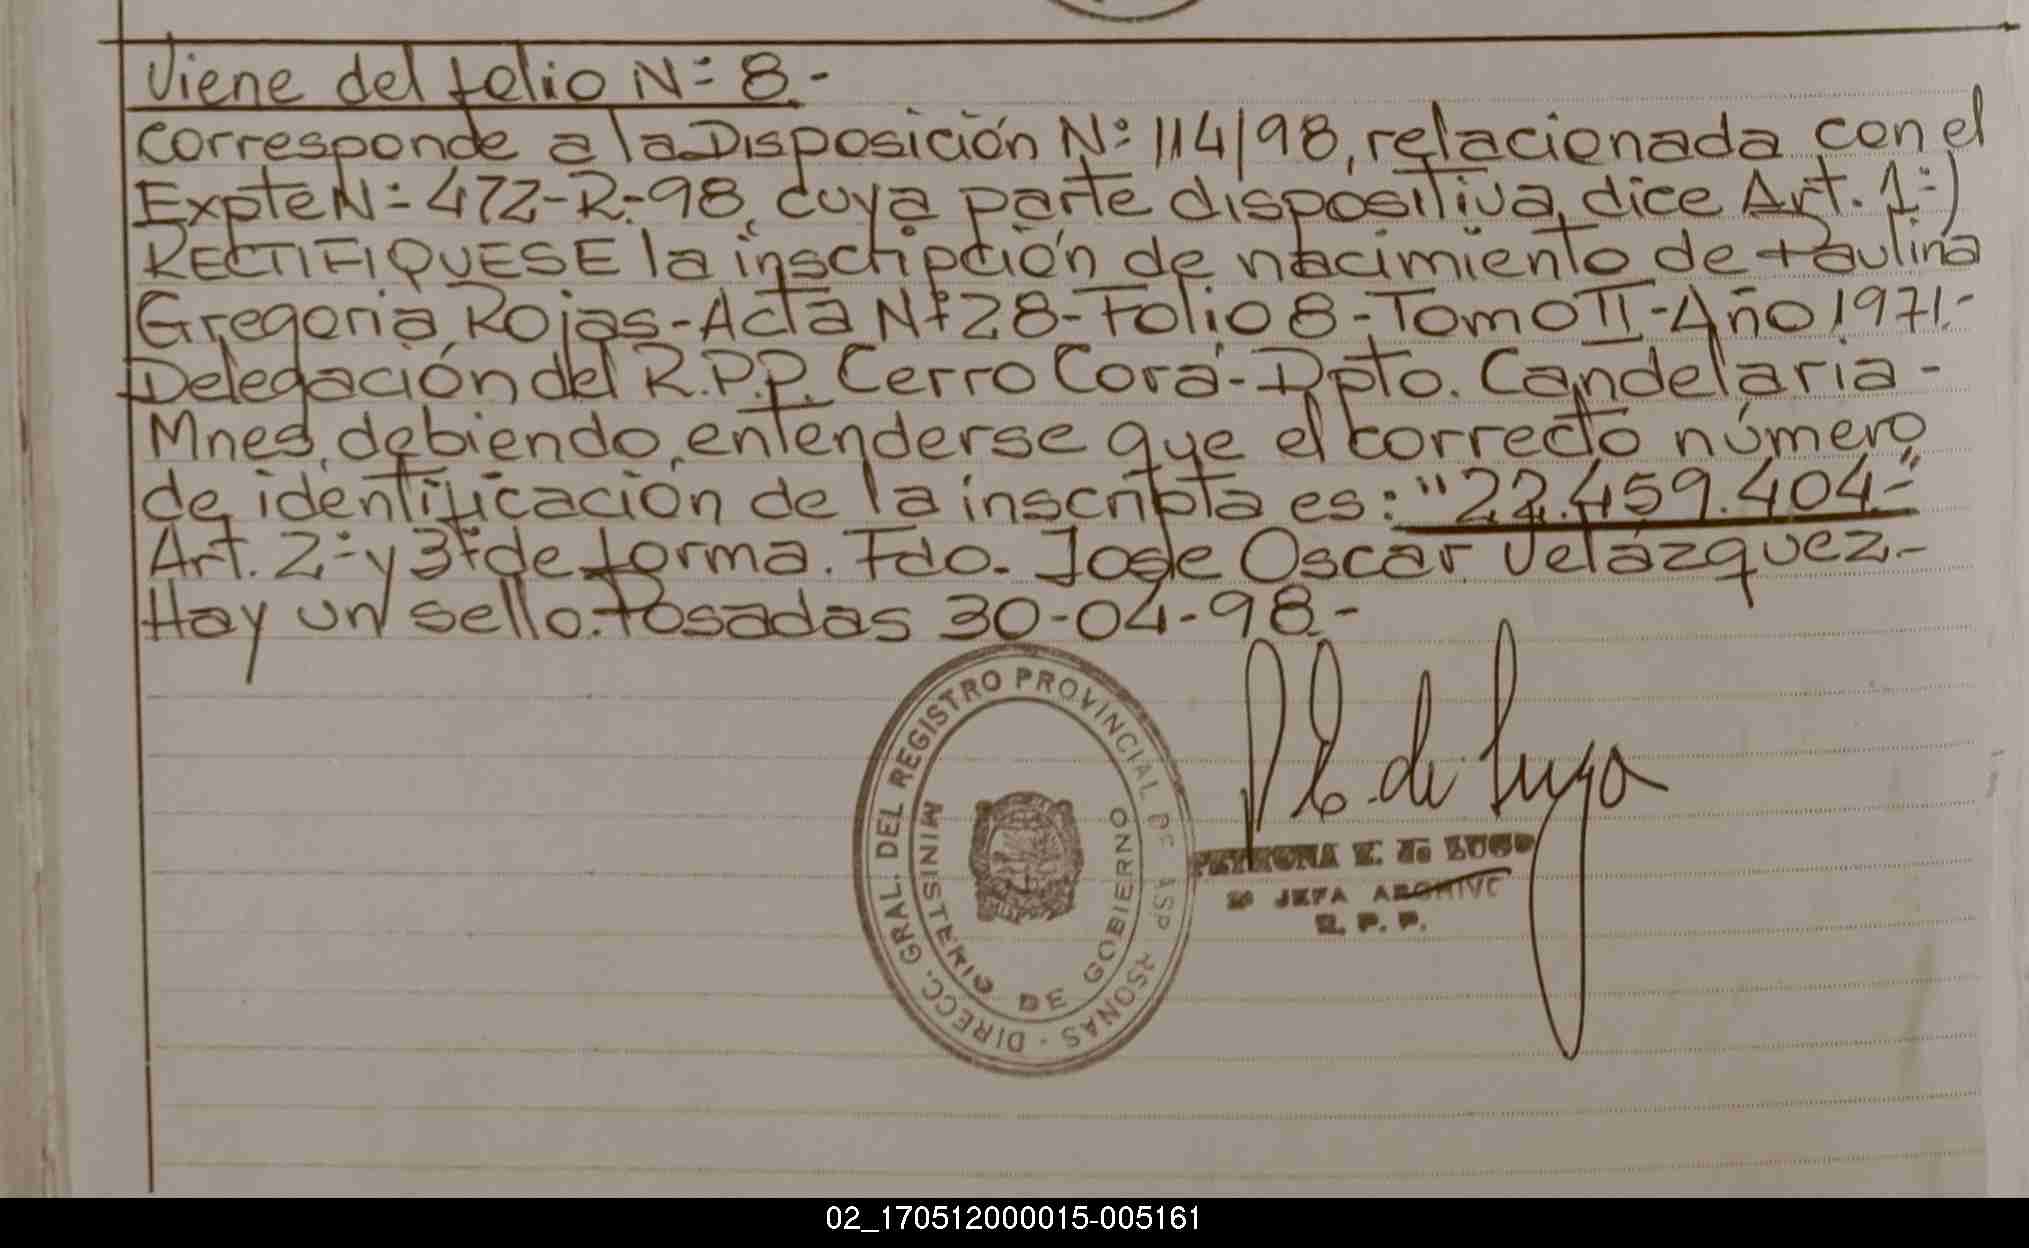 Viene del folio Nº 8.-
Corresponde a la Disposición Nº 114/98, relacionada con el
Expte Nº 472-R-98, cuya parte dispositiva, dice Art. 1º)
RECTIFIQUESE la inscripción de nacimiento de Paulina
Gregoria Rojas-Acta Nº 28-Folio 8-Tomo II-Año 1971.-
Delegación del R.P.P. Cerro Corá-Dpto. Candelaria-
Mnes, debiendo entenderse que el correcto número
de identificación de la inscripta es: "22.459.404-"
Art. 2º y 3º de forma. Fdo. Jose Oscar Velázquez.-
Hay un sello. Posadas 30-04-98.-
DIRECC. GRAL. DEL REGISTRO PROVINCIAL DE LAS PERSONAS
MINISTERIO DE GOBIERNO
P E. de Lugo
PETRONA E. de LUGO
2º JEFA ARCHIVO
R. P. P.
02_170512000015-005161